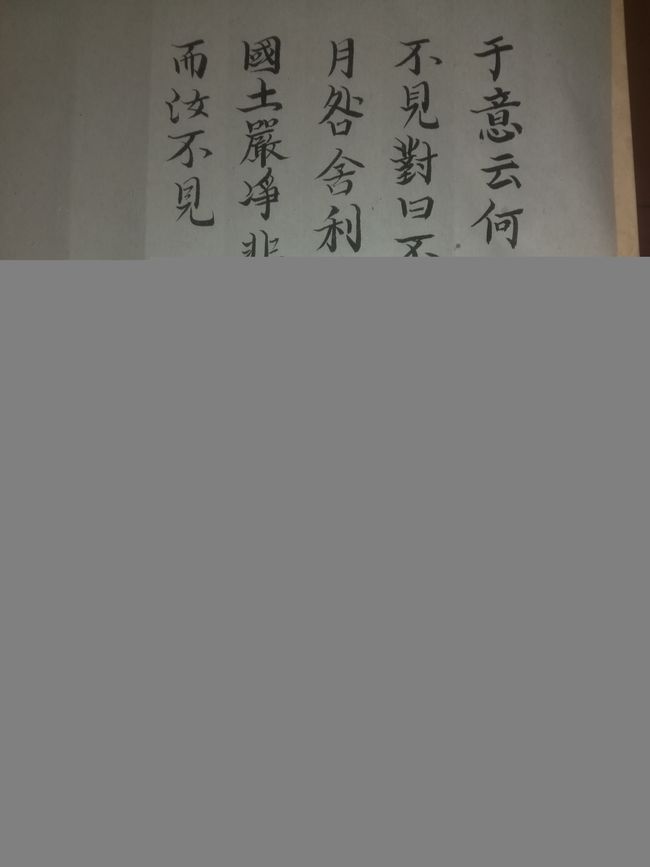 于意云何
不見對曰不
月咎舍利
國土嚴净非
而汝不見